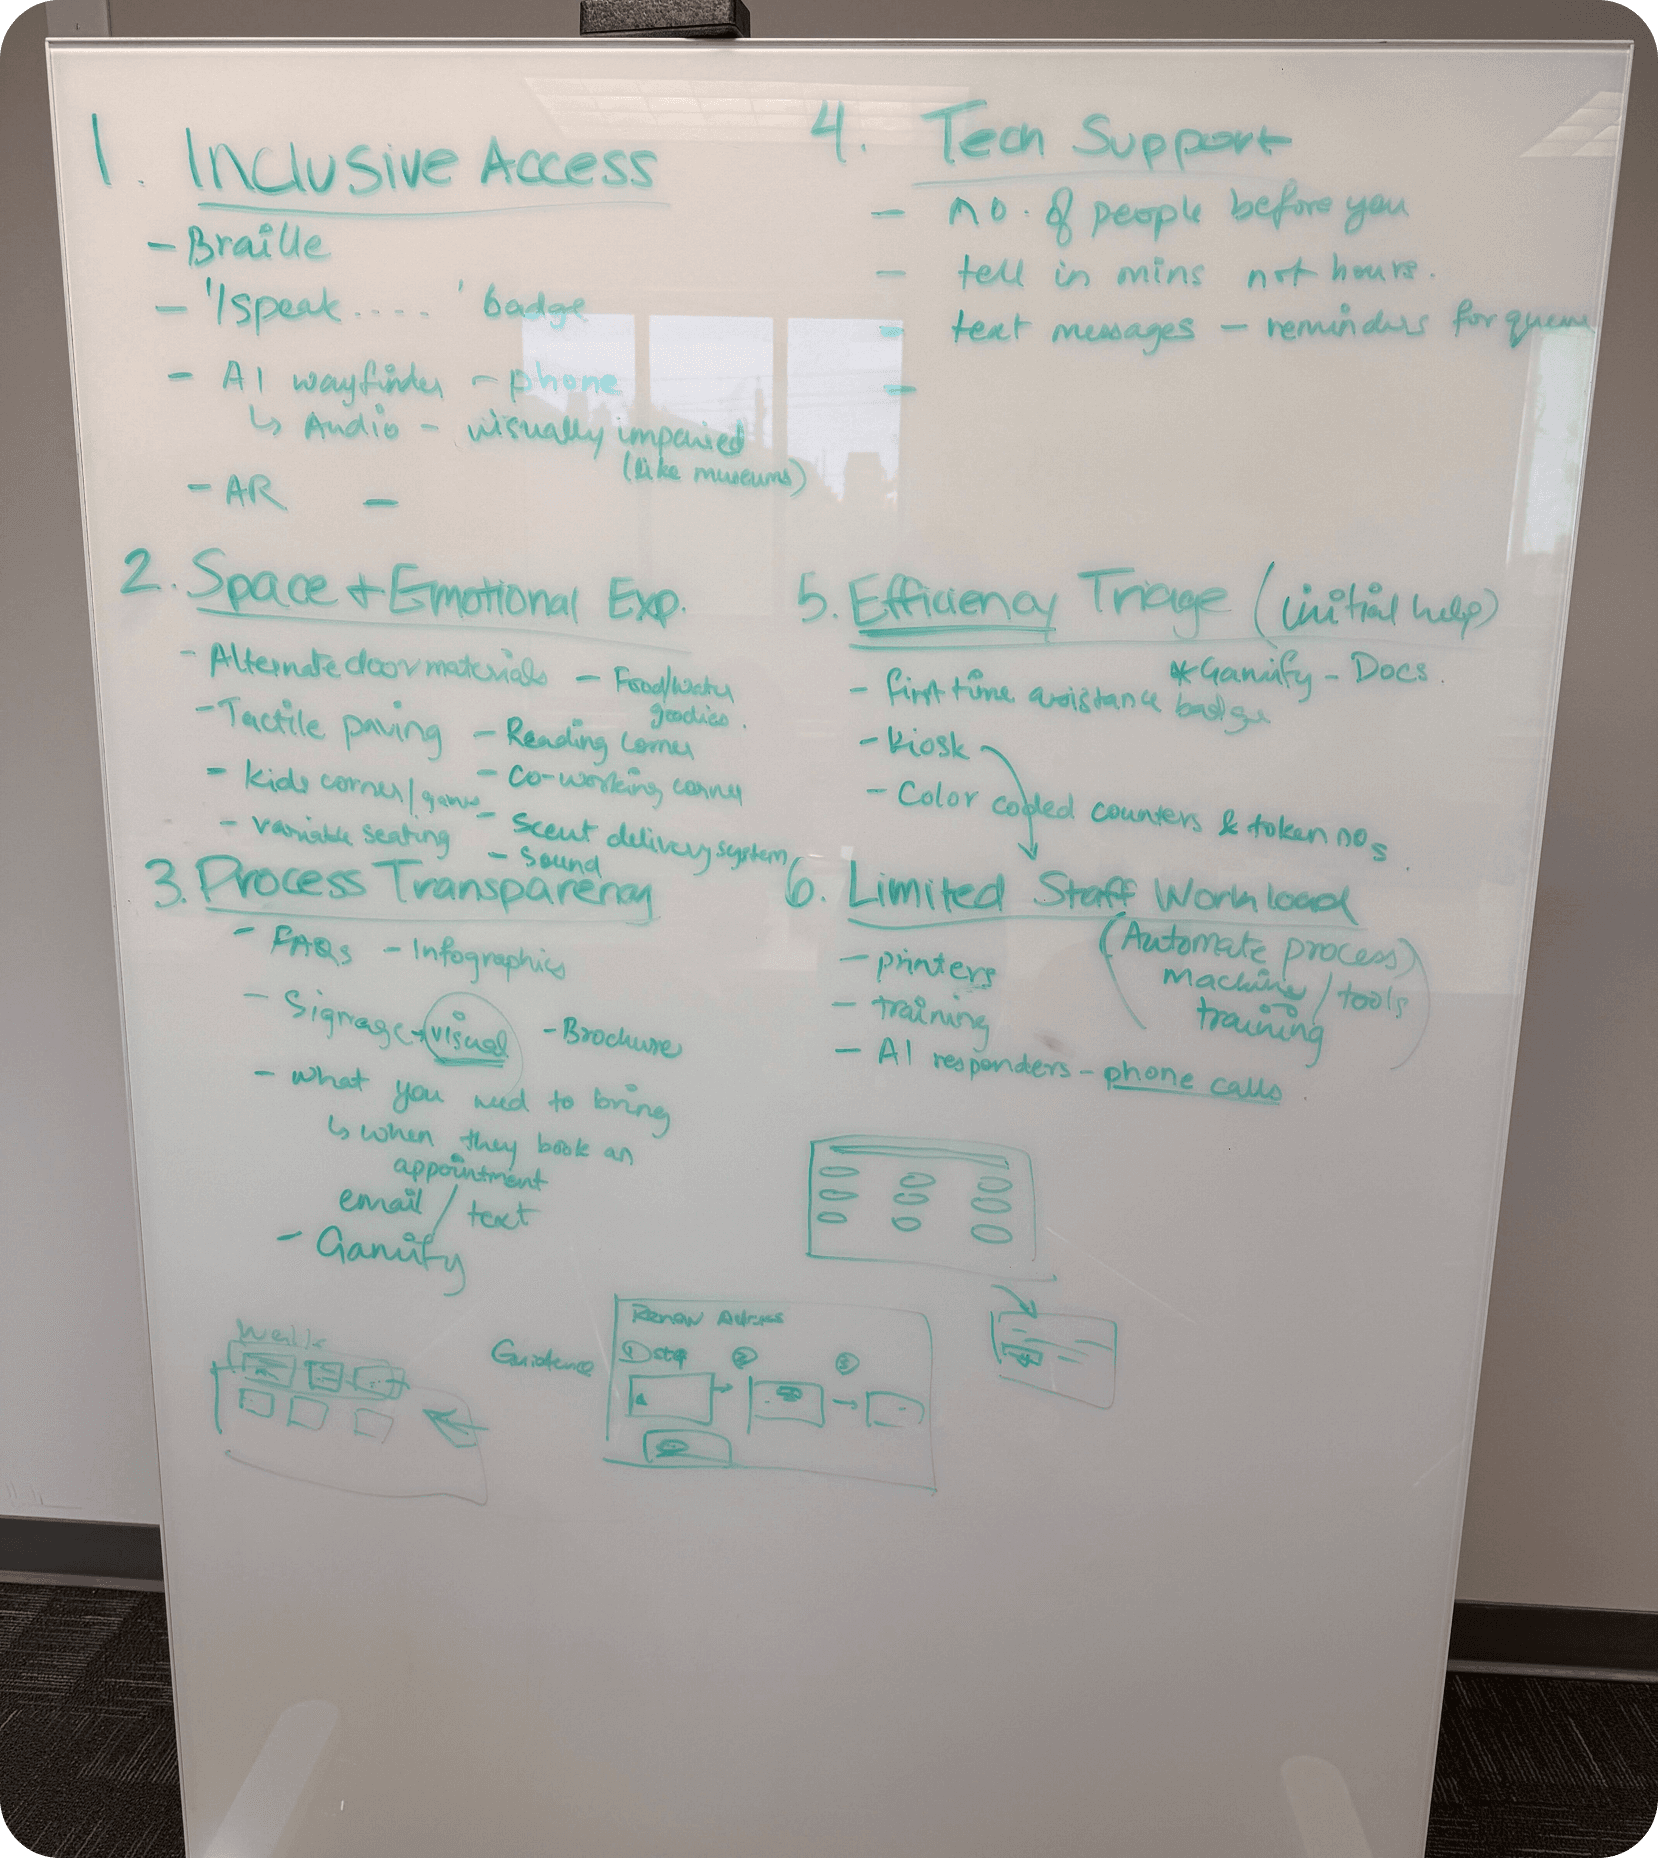 1. Inclusive Access
- Braille
- 'I speak....' badge
- AI wayfinder - phone
↳ Audio - visually impaired
(like museums)
- AR -
2. Space + Emotional Exp.
- Alternate door materials
- Tactile paving
- kids corner/games
- variable seating
- Food/water
goodies.
- Reading corner
- Co-working corner
- Scent delivery system
- Sound
3. Process Transparency
- FAQs - Infographics
- Signage → visual - Brochure
- what you need to bring
↳ when they book an
appointment
email / text
- Gamify
4. Tech Support
- no. of people before you
- tell in mins not hours.
- text messages - reminders for queue
-
5. Efficiency Triage (initial help)
* Gamify - Docs.
- first time assistance badge
- kiosk
- Color coded counters & token nos.
6. Limited Staff Workload
(Automate process)
machine / tools
training
- printers
- training
- AI responders - phone calls.
Guidance
Renew
① ② ③